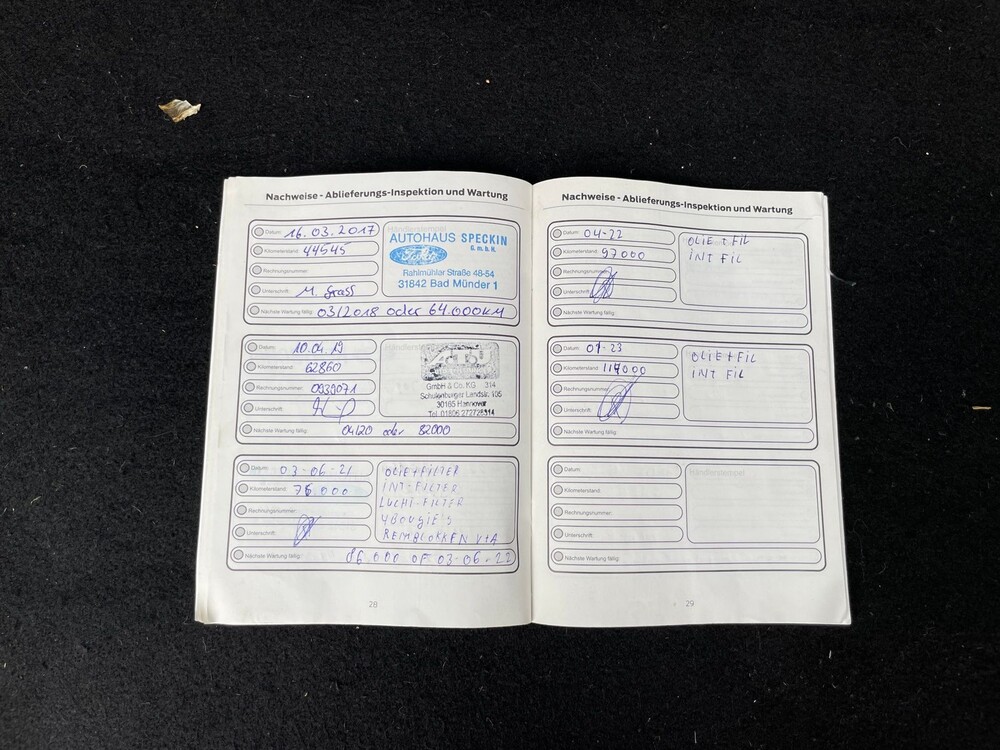 Nachweise - Ablieferungs-Inspektion und Wartung
Datum: 16.03.2017
Kilometerstand: 44545
Rechnungsnummer:
Unterschrift: M. Grass
Händlerstempel
AUTOHAUS SPECKIN
G.m.b.H.
Ford
Rahlmühler Straße 48-54
31842 Bad Münder 1
Nächste Wartung fällig: 03/2018 oder 64.000KM
Datum: 10.04.19
Kilometerstand: 62860
Rechnungsnummer: 0938071
Unterschrift:
GmbH & Co. KG 314
Schulenburger Landstr. 105
30165 Hannover
Nächste Wartung fällig: 04/20 oder 82000
Datum: 03-06-21
Kilometerstand: 76.000
Rechnungsnummer:
Unterschrift:
OLIE+FILTER
INT-FILTER
LUCHT-FILTER
4 BOUGIE'S
REMBLOKKEN V+A
Nächste Wartung fällig: 86.000 OF 03-06-22
28
Nachweise - Ablieferungs-Inspektion und Wartung
Datum: 04-22
Kilometerstand: 97000
Rechnungsnummer:
Unterschrift:
OLIE + FIL
INT FIL
Nächste Wartung fällig:
Datum: 07-23
Kilometerstand: 114000
Rechnungsnummer:
Unterschrift:
OLIE+FIL
INT FIL
Nächste Wartung fällig:
Datum:
Kilometerstand:
Rechnungsnummer:
Unterschrift:
Händlerstempel
Nächste Wartung fällig:
29